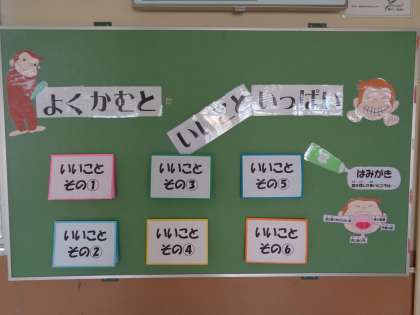 よくかむと
いいこと
いっぱい
いいこと
その①
いいこと
その③
いいこと
その⑤
はみがき
いいこと
その②
いいこと
その④
いいこと
その⑥